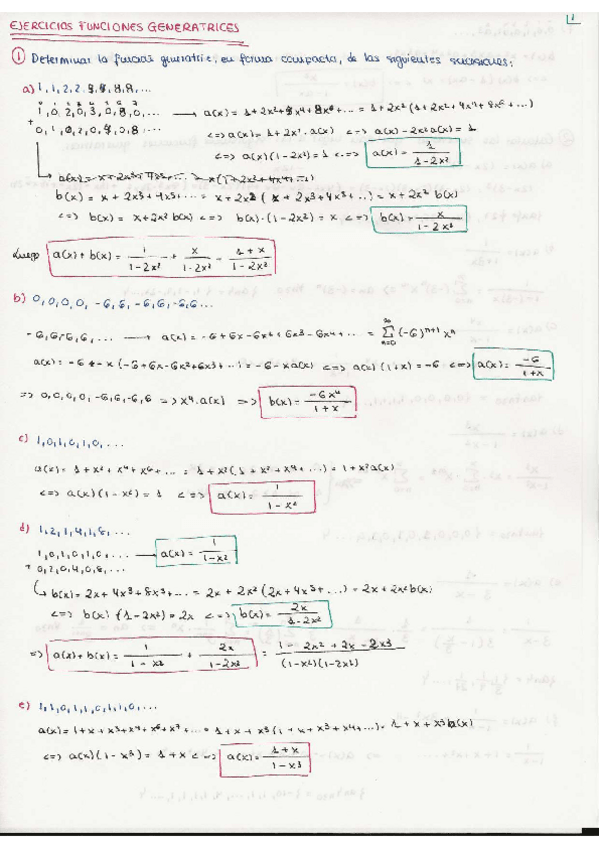 1
EJERCICIOS FUNCIONES GENERATRICES
① Determinar la función generatriz, en forma compacta, de las siguientes sucesiones:
a) 1, 1, 2, 2, 4, 4, 8, 8, ...
1, 0, 2, 0, 4, 0, 8, 0, ... → a(x) = 1 + 2x² + 4x⁴ + 8x⁶ + ... = 1 + 2x² (1 + 2x² + 4x⁴ + 8x⁶ + ...)
+ 0, 1, 0, 2, 0, 4, 0, 8 ... <=> a(x) = 1 + 2x² · a(x) <=> a(x) - 2x² a(x) = 1
<=> a(x) (1 - 2x²) = 1 <=> a(x) = 1 / (1 - 2x²)
b(x) = x + 2x³ + 4x⁵ + ... = x + 2x² (x + 2x³ + 4x⁵ + ...) = x + 2x² b(x)
<=> b(x) = x + 2x² b(x) <=> b(x) · (1 - 2x²) = x <=> b(x) = x / (1 - 2x²)
Luego a(x) + b(x) = 1 / (1 - 2x²) + x / (1 - 2x²) = (1 + x) / (1 - 2x²)
b) 0, 0, 0, 0, -6, 6, -6, 6, -6, 6 ...
-6, 6, -6, 6, ... → a(x) = -6 + 6x - 6x² + 6x³ - 6x⁴ + ... = ∑ n=0 ∞ (-6)ⁿ⁺¹ xⁿ
a(x) = -6 + -x (-6 + 6x - 6x² + 6x³ + ...) = -6 - x a(x) <=> a(x) (1 + x) = -6 <=> a(x) = -6 / (1 + x)
=> 0, 0, 0, 0, -6, 6, -6, 6 => x⁴ · a(x) => b(x) = -6x⁴ / (1 + x)
c) 1, 0, 1, 0, 1, 0, ...
a(x) = 1 + x² + x⁴ + x⁶ + ... = 1 + x² (1 + x² + x⁴ + ...) = 1 + x² a(x)
<=> a(x) (1 - x²) = 1 <=> a(x) = 1 / (1 - x²)
d) 1, 2, 1, 4, 1, 8, ...
1, 0, 1, 0, 1, 0, ... → a(x) = 1 / (1 - x²)
+ 0, 2, 0, 4, 0, 8, ...
b(x) = 2x + 4x³ + 8x⁵ + ... = 2x + 2x² (2x + 4x³ + ...) = 2x + 2x² b(x)
<=> b(x) (1 - 2x²) = 2x <=> b(x) = 2x / (1 - 2x²)
=> a(x) + b(x) = 1 / (1 - x²) + 2x / (1 - 2x²) = (1 - 2x² + 2x - 2x³) / ((1 - x²) (1 - 2x²))
e) 1, 1, 0, 1, 1, 0, 1, 1, 0, ...
a(x) = 1 + x + x³ + x⁴ + x⁶ + x⁷ + ... = 1 + x + x³ (1 + x + x³ + x⁴ + ...) = 1 + x + x³ a(x)
<=> a(x) (1 - x³) = 1 + x <=> a(x) = (1 + x) / (1 - x³)